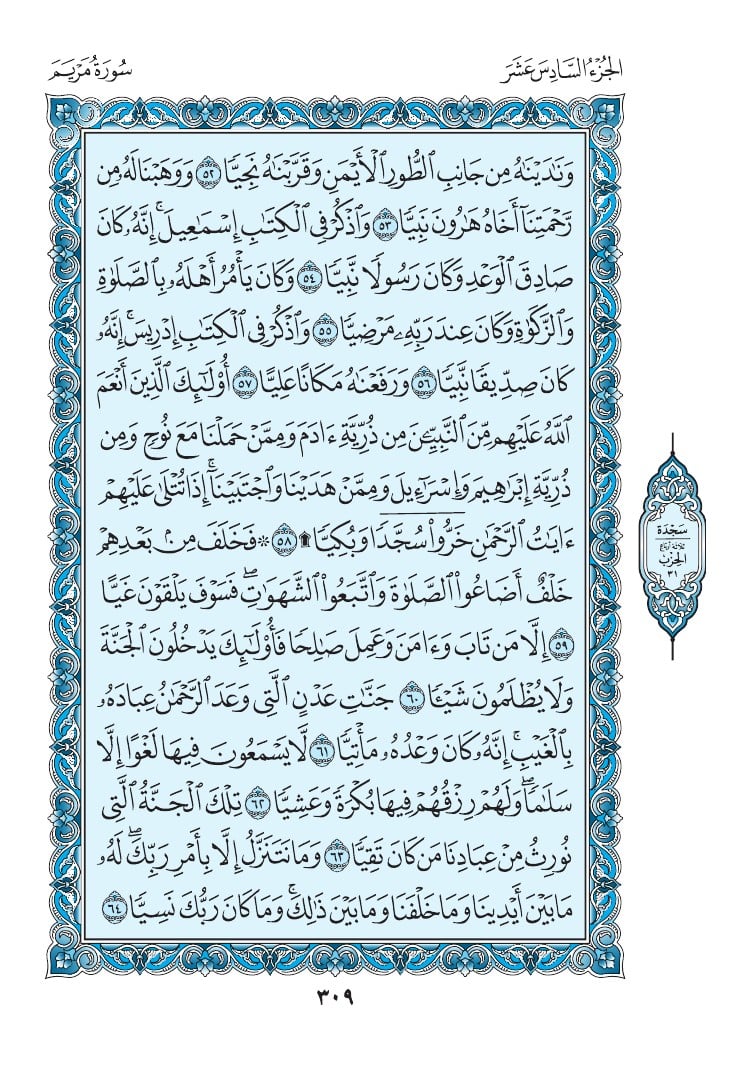 الجُزْءُ السَّادِسَ عَشَرَ
سُورَةُ مَرْيَمَ
وَنَٰدَيْنَٰهُ مِن جَانِبِ ٱلطُّورِ ٱلْأَيْمَنِ وَقَرَّبْنَٰهُ نَجِيًّا ٥٢ وَوَهَبْنَا لَهُۥ مِن
رَّحْمَتِنَآ أَخَاهُ هَٰرُونَ نَبِيًّا ٥٣ وَٱذْكُرْ فِى ٱلْكِتَٰبِ إِسْمَٰعِيلَ ۚ إِنَّهُۥ كَانَ
صَادِقَ ٱلْوَعْدِ وَكَانَ رَسُولًا نَّبِيًّا ٥٤ وَكَانَ يَأْمُرُ أَهْلَهُۥ بِٱلصَّلَوٰةِ
وَٱلزَّكَوٰةِ وَكَانَ عِندَ رَبِّهِۦ مَرْضِيًّا ٥٥ وَٱذْكُرْ فِى ٱلْكِتَٰبِ إِدْرِيسَ ۚ إِنَّهُۥ
كَانَ صِدِّيقًا نَّبِيًّا ٥٦ وَرَفَعْنَٰهُ مَكَانًا عَلِيًّا ٥٧ أُو۟لَٰٓئِكَ ٱلَّذِينَ أَنْعَمَ
ٱللَّهُ عَلَيْهِم مِّنَ ٱلنَّبِيِّـۧنَ مِن ذُرِّيَّةِ ءَادَمَ وَمِمَّنْ حَمَلْنَا مَعَ نُوحٍ وَمِن
ذُرِّيَّةِ إِبْرَٰهِيمَ وَإِسْرَٰٓءِيلَ وَمِمَّنْ هَدَيْنَا وَٱجْتَبَيْنَآ ۚ إِذَا تُتْلَىٰ عَلَيْهِمْ
ءَايَٰتُ ٱلرَّحْمَٰنِ خَرُّوا۟ سُجَّدًا وَبُكِيًّا ۩ ٥٨ ۞ فَخَلَفَ مِنۢ بَعْدِهِمْ
خَلْفٌ أَضَاعُوا۟ ٱلصَّلَوٰةَ وَٱتَّبَعُوا۟ ٱلشَّهَوَٰتِ ۖ فَسَوْفَ يَلْقَوْنَ غَيًّا
٥٩ إِلَّا مَن تَابَ وَءَامَنَ وَعَمِلَ صَٰلِحًا فَأُو۟لَٰٓئِكَ يَدْخُلُونَ ٱلْجَنَّةَ
وَلَا يُظْلَمُونَ شَيْـًٔا ٦٠ جَنَّٰتِ عَدْنٍ ٱلَّتِى وَعَدَ ٱلرَّحْمَٰنُ عِبَادَهُۥ
بِٱلْغَيْبِ ۚ إِنَّهُۥ كَانَ وَعْدُهُۥ مَأْتِيًّا ٦١ لَّا يَسْمَعُونَ فِيهَا لَغْوًا إِلَّا
سَلَٰمًا ۖ وَلَهُمْ رِزْقُهُمْ فِيهَا بُكْرَةً وَعَشِيًّا ٦٢ تِلْكَ ٱلْجَنَّةُ ٱلَّتِى
نُورِثُ مِنْ عِبَادِنَا مَن كَانَ تَقِيًّا ٦٣ وَمَا نَتَنَزَّلُ إِلَّا بِأَمْرِ رَبِّكَ ۖ لَهُۥ
مَا بَيْنَ أَيْدِينَا وَمَا خَلْفَنَا وَمَا بَيْنَ ذَٰلِكَ ۚ وَمَا كَانَ رَبُّكَ نَسِيًّا ٦٤
سَجْدَة
ثلاثة أرباع
الحِزْب
٣١
٣٠٩